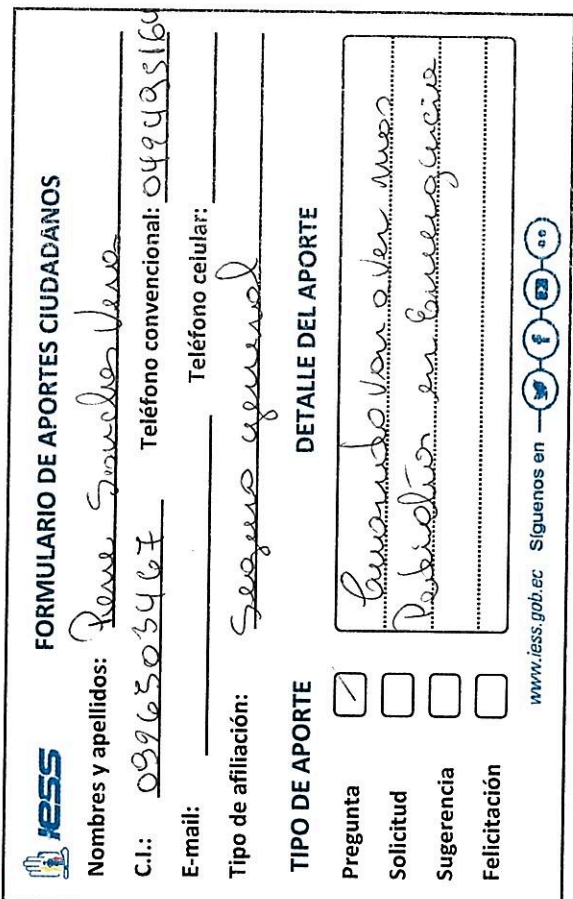 IESS
FORMULARIO DE APORTES CIUDADANOS
Nombres y apellidos: Rene Sanchez Vera
C.I.: 0396503467 Teléfono convencional: 0494495164
E-mail: Teléfono celular:
Tipo de afiliación: Seguro general
TIPO DE APORTE
DETALLE DEL APORTE
Pregunta
Solicitud
Sugerencia
Felicitación
Cuando van a ver mas
Pediatras en Emergencia
www.iess.gob.ec Síguenos en